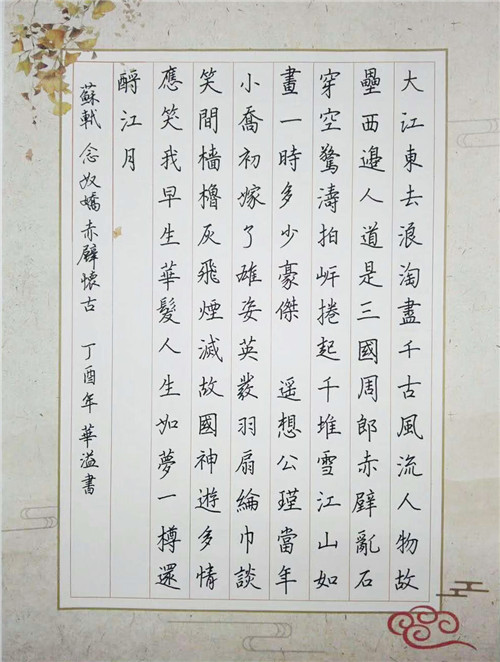 大江東去浪淘盡千古風流人物故
壘西邉人道是三國周郎赤壁亂石
穿空驚濤拍岍捲起千堆雪江山如
畫一時多少豪傑　遥想公瑾當年
小喬初嫁了雄姿英發羽扇綸巾談
笑間檣櫓灰飛煙滅故國神遊多情
應笑我早生華髮人生如夢一樽還
酹江月
蘇軾 念奴嬌 赤壁懷古　丁酉年 華溢書